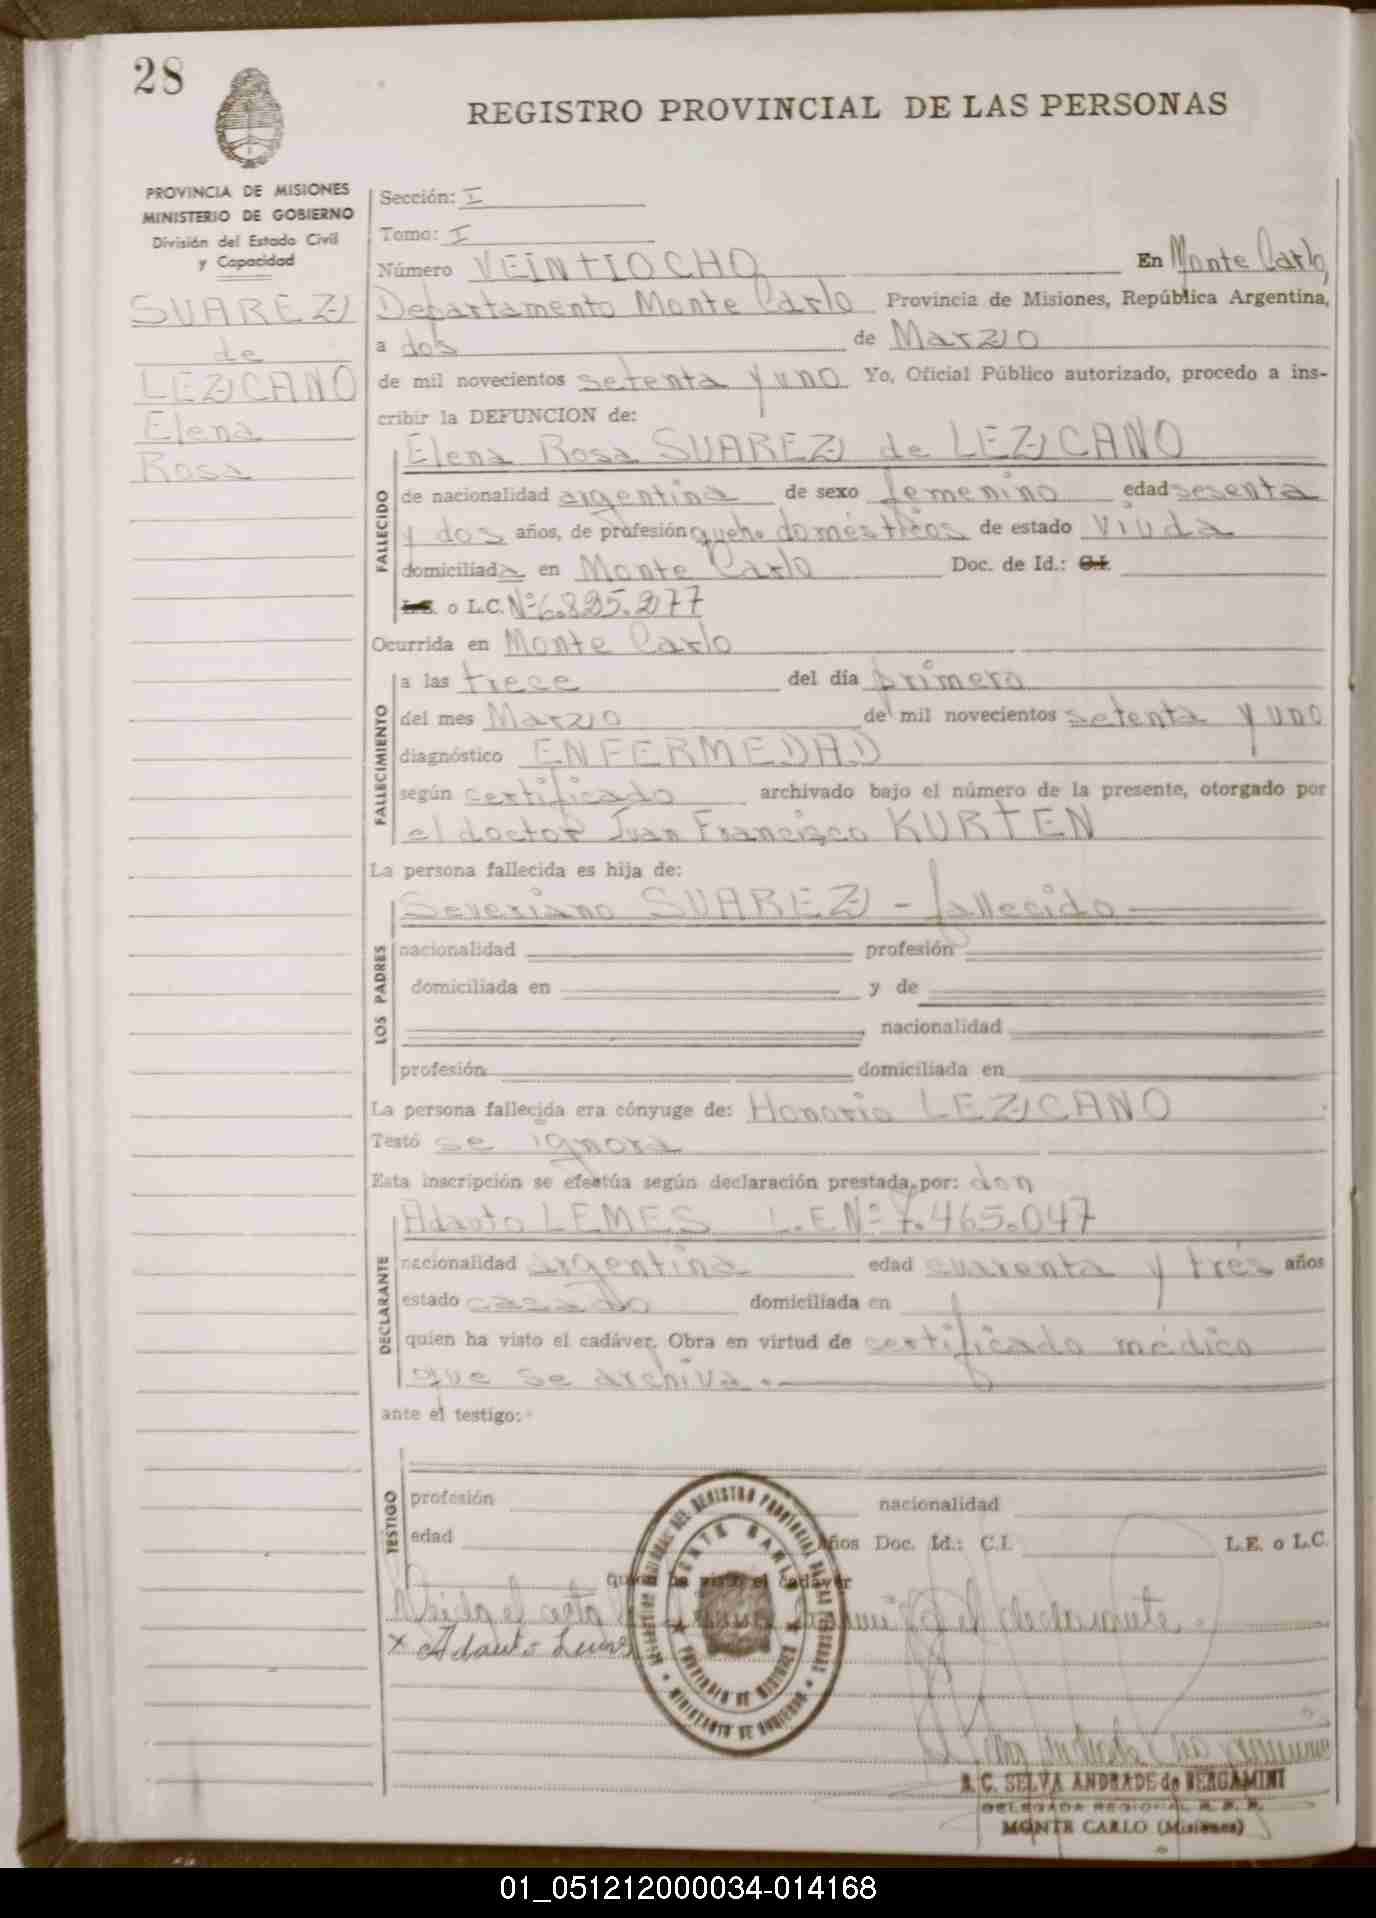 28
REGISTRO PROVINCIAL DE LAS PERSONAS
PROVINCIA DE MISIONES
MINISTERIO DE GOBIERNO
División del Estado Civil
y Capacidad
SUAREZ
de
LEZCANO
Elena
Rosa
Sección: I
Tomo: I
Número VEINTIOCHO En Monte Carlo,
Departamento Monte Carlo Provincia de Misiones, República Argentina,
a dos de Marzo
de mil novecientos setenta y uno Yo, Oficial Público autorizado, procedo a ins-
cribir la DEFUNCION de:
FALLECIDO
Elena Rosa SUAREZ de LEZCANO
de nacionalidad argentina de sexo femenino edad sesenta
y dos años, de profesión queh. domésticos de estado viuda
domiciliada en Monte Carlo Doc. de Id.: C.I.
L.E. o L.C. Nº 6.825.277
Ocurrida en Monte Carlo
FALLECIMIENTO
a las trece del día primero
del mes Marzo de mil novecientos setenta y uno
diagnóstico ENFERMEDAD
según certificado archivado bajo el número de la presente, otorgado por
el doctor Juan Francisco KURTEN
La persona fallecida es hija de:
LOS PADRES
Severiano SUAREZ - fallecido
nacionalidad profesión
domiciliada en y de
nacionalidad
profesión domiciliada en
La persona fallecida era cónyuge de: Honorio LEZCANO
Testó se ignora
Esta inscripción se efectúa según declaración prestada por: don
DECLARANTE
Adauto LEMES L.E Nº 7.465.047
nacionalidad argentina edad cuarenta y tres años
estado casado domiciliada en
quien ha visto el cadáver. Obra en virtud de certificado médico
que se archiva.-
ante el testigo:
TESTIGO
profesión nacionalidad
edad años Doc. Id.: C.I. L.E. o L.C.
quien ha visto el cadáver
Leida el acta el declarante.
x Adauto Lemes
MONTE CARLO
PROVINCIA DE MISIONES
MINISTERIO DE GOBIERNO
S. C. SELVA ANDRADE de BERGAMINI
DELEGADA REGIONAL R. P. P.
MONTE CARLO (Misiones)
01_051212000034-014168